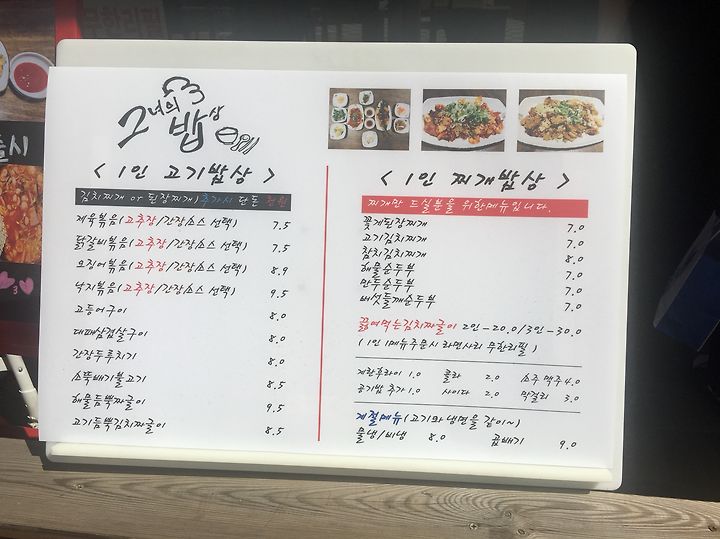 그녀의 밥상
< 1인 고기밥상 >
김치찌개 or 된장찌개 추가시 단돈 천원
제육볶음(고추장/간장소스 선택) 7.5
닭갈비볶음(고추장/간장소스 선택) 7.5
오징어볶음(고추장/간장소스 선택) 8.9
낙지볶음(고추장/간장소스 선택) 9.5
고등어구이 8.0
대패삼겹살구이 8.0
간장두루치기 8.0
소뚝배기불고기 8.5
해물듬뿍짜글이 9.5
고기듬뿍김치짜글이 8.5
< 1인 찌개밥상 >
찌개만 드실분을 위한메뉴입니다.
꽃게된장찌개 7.0
고기김치찌개 7.0
참치김치찌개 8.0
해물순두부 7.0
만두순두부 7.0
버섯들깨순두부 7.0
끓여먹는김치짜글이 2인-20.0/3인-30.0
(1인 1메뉴주문시 라면사리 무한리필)
계란후라이 1.0 콜라 2.0 소주 맥주 4.0
공기밥 추가 1.0 사이다 2.0 막걸리 3.0
계절메뉴(고기와 냉면을 같이~)
물냉/비냉 8.0 곱빼기 9.0